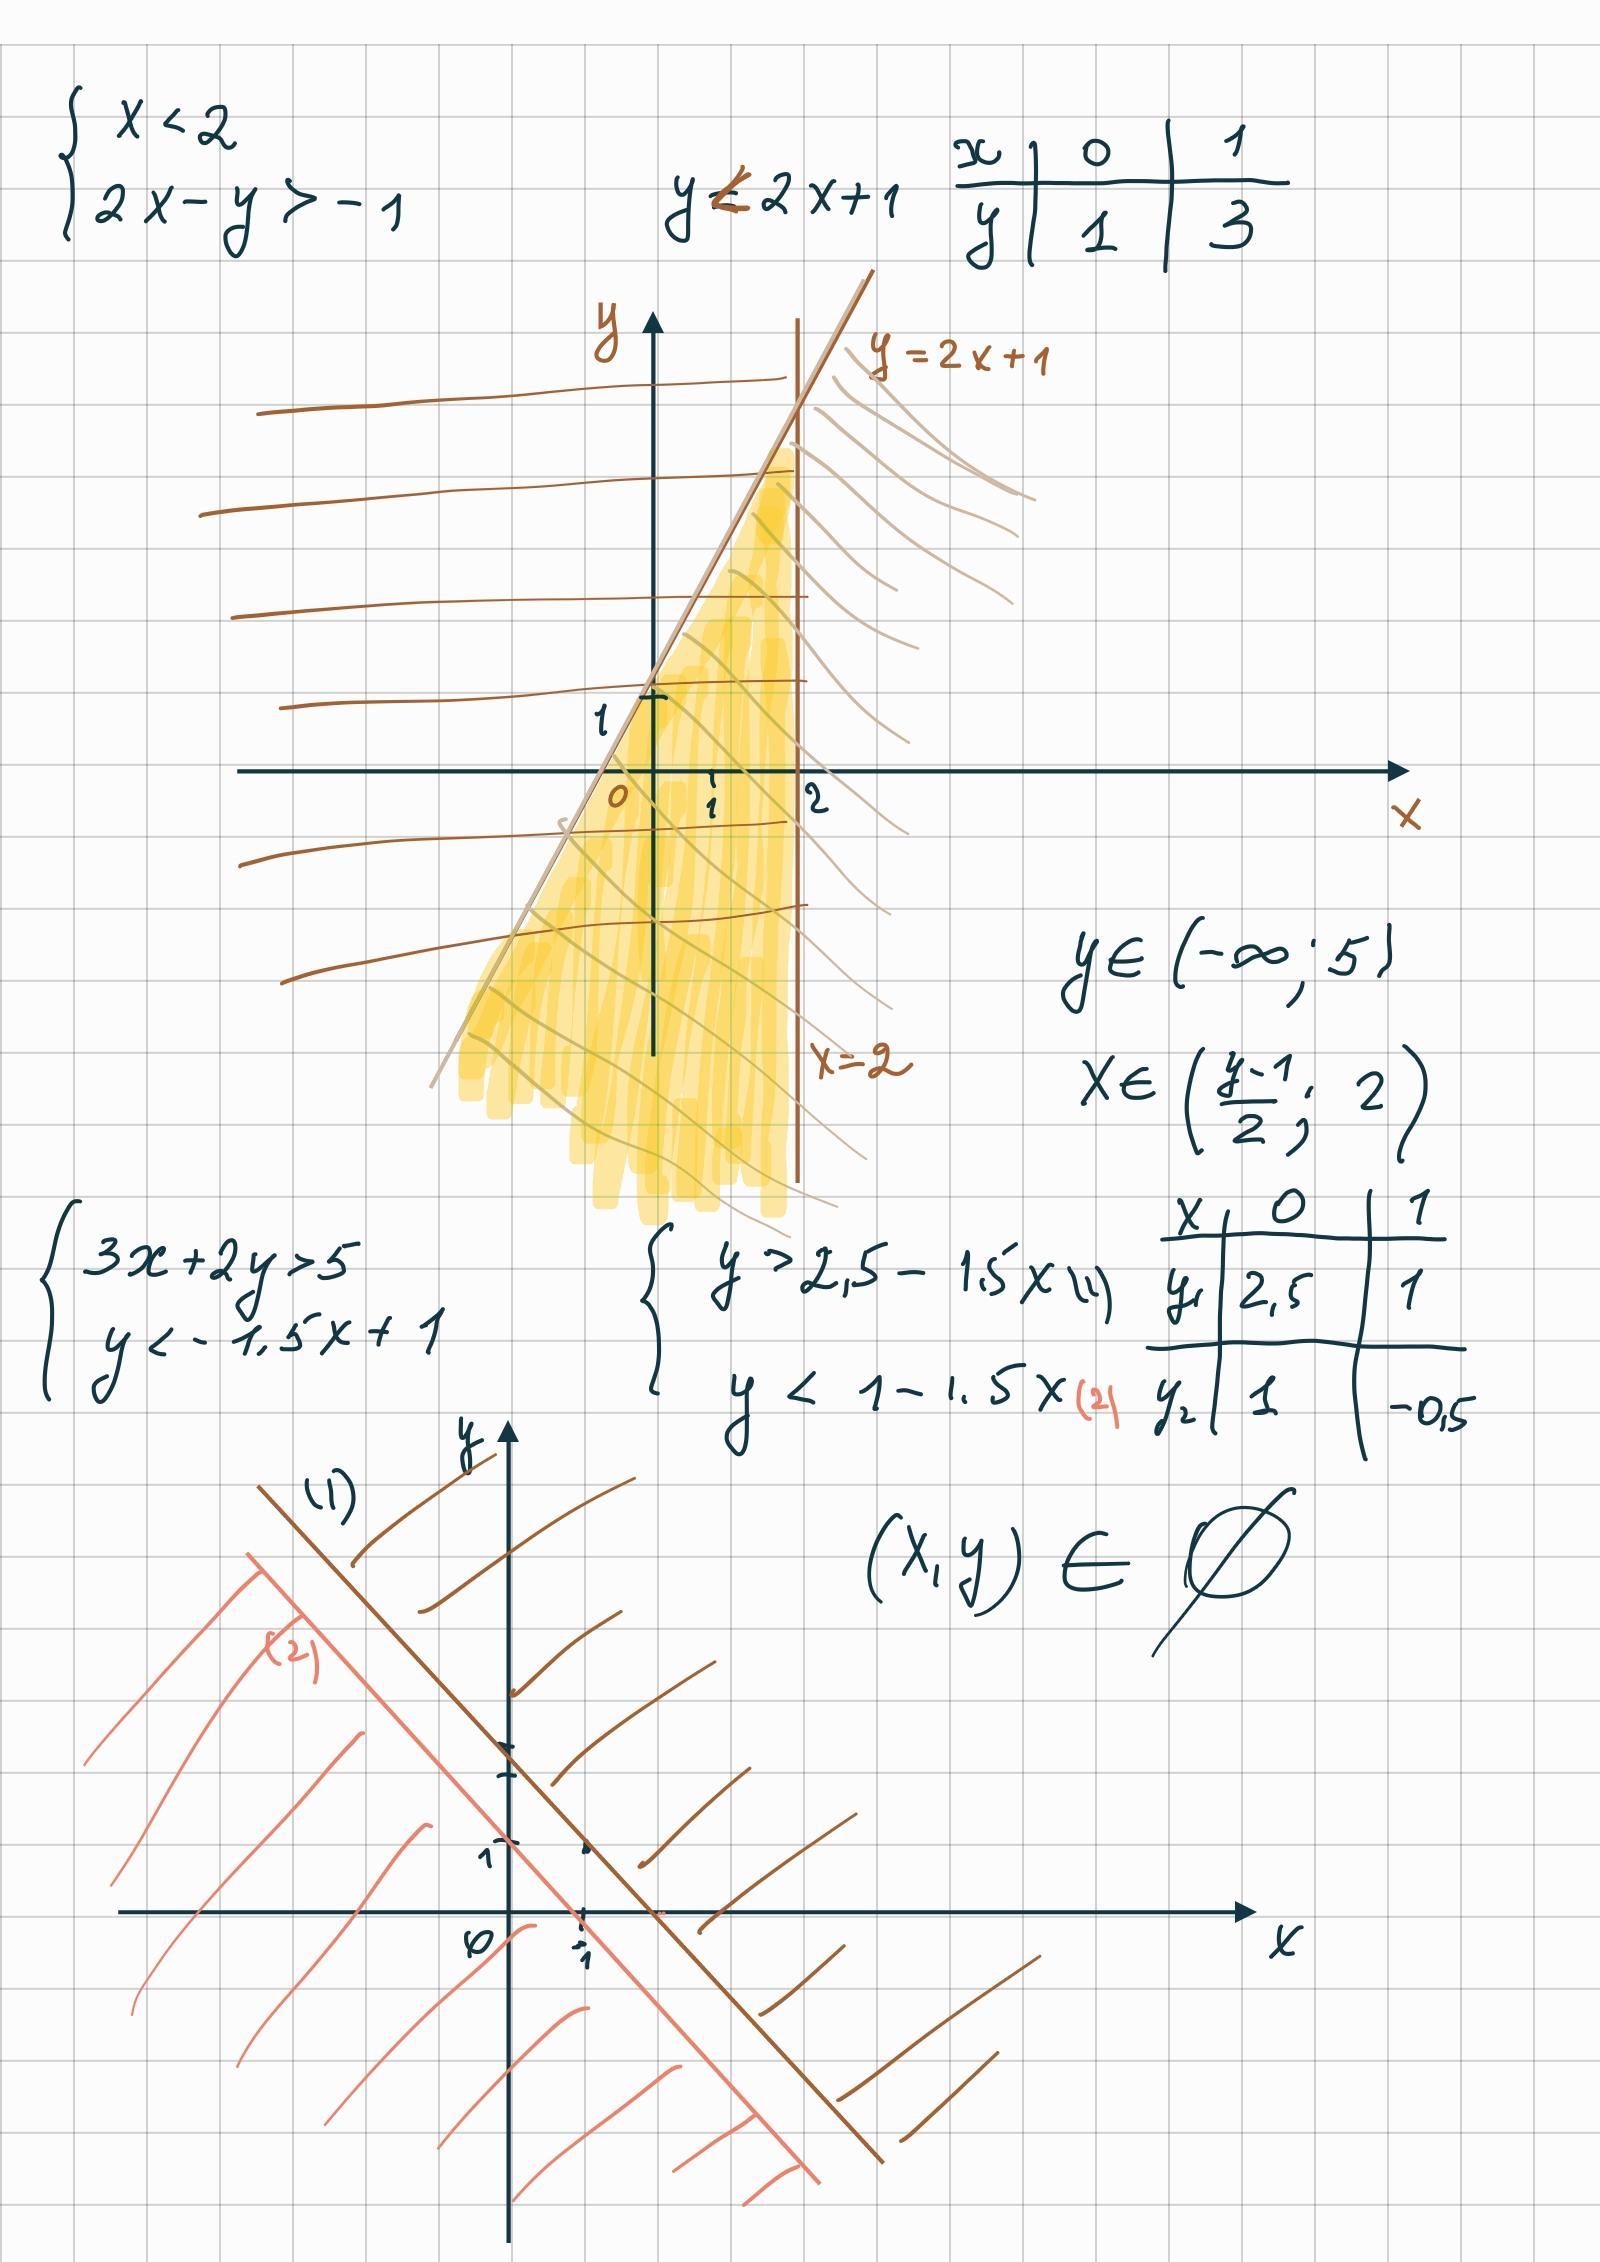 { x < 2
2x - y > -1
y < 2x + 1
x | 0 | 1
y | 1 | 3
y
y = 2x + 1
1
0
1
2
x
y ∈ (-∞; 5)
x = 2
x ∈ ((y-1)/2; 2)
{ 3x + 2y > 5
y < -1,5x + 1
{ y > 2,5 - 1,5x (1)
y < 1 - 1.5x (2)
x | 0 | 1
y₁ | 2,5 | 1
y₂ | 1 | -0,5
y
(1)
(x, y) ∈ ∅
(2)
1
0
1
x